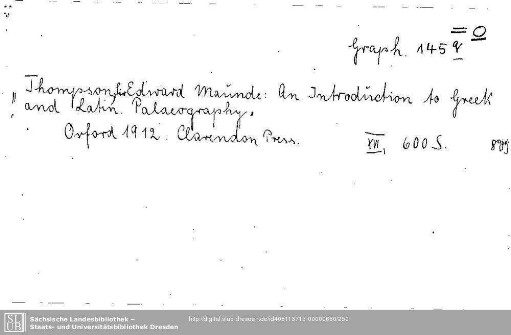 Graph. 145 q
Thompson, Edward Maunde: An Introduction to Greek
and Latin Palaeography.
Oxford 1912. Clarendon Press. XVI, 600 S. 8°
Sächsische Landesbibliothek –
Staats- und Universitätsbibliothek Dresden